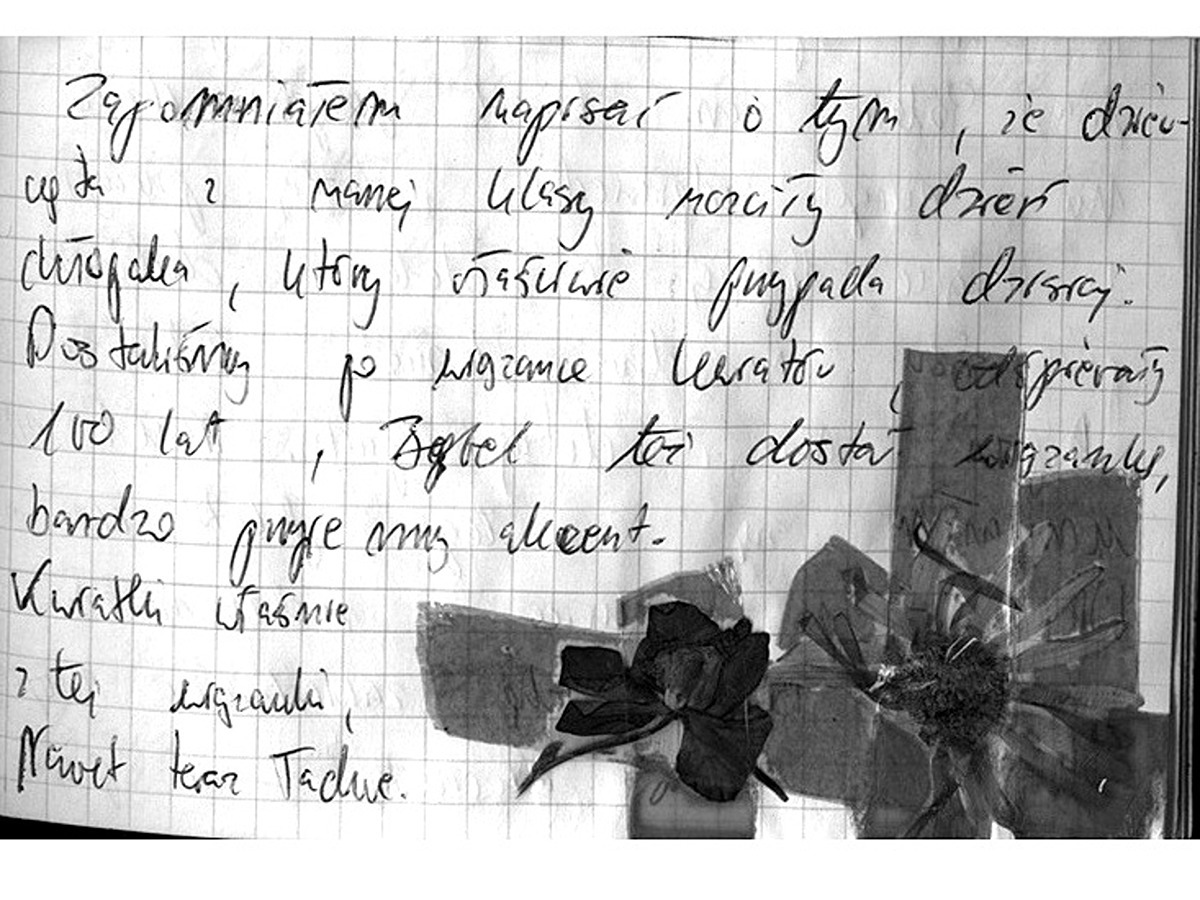 Zapomniałem napisać o tym, że dziew-
częta z naszej klasy uczciły dzień
chłopaka, który właściwie przypada dzisiaj.
Dostaliśmy po wiązance kwiatów, odśpiewały
100 lat, też dostał wiązankę,
bardzo przyjemny akcent.
Kwiatki właśnie
z tej wiązanki,
Nawet teraz ładne.